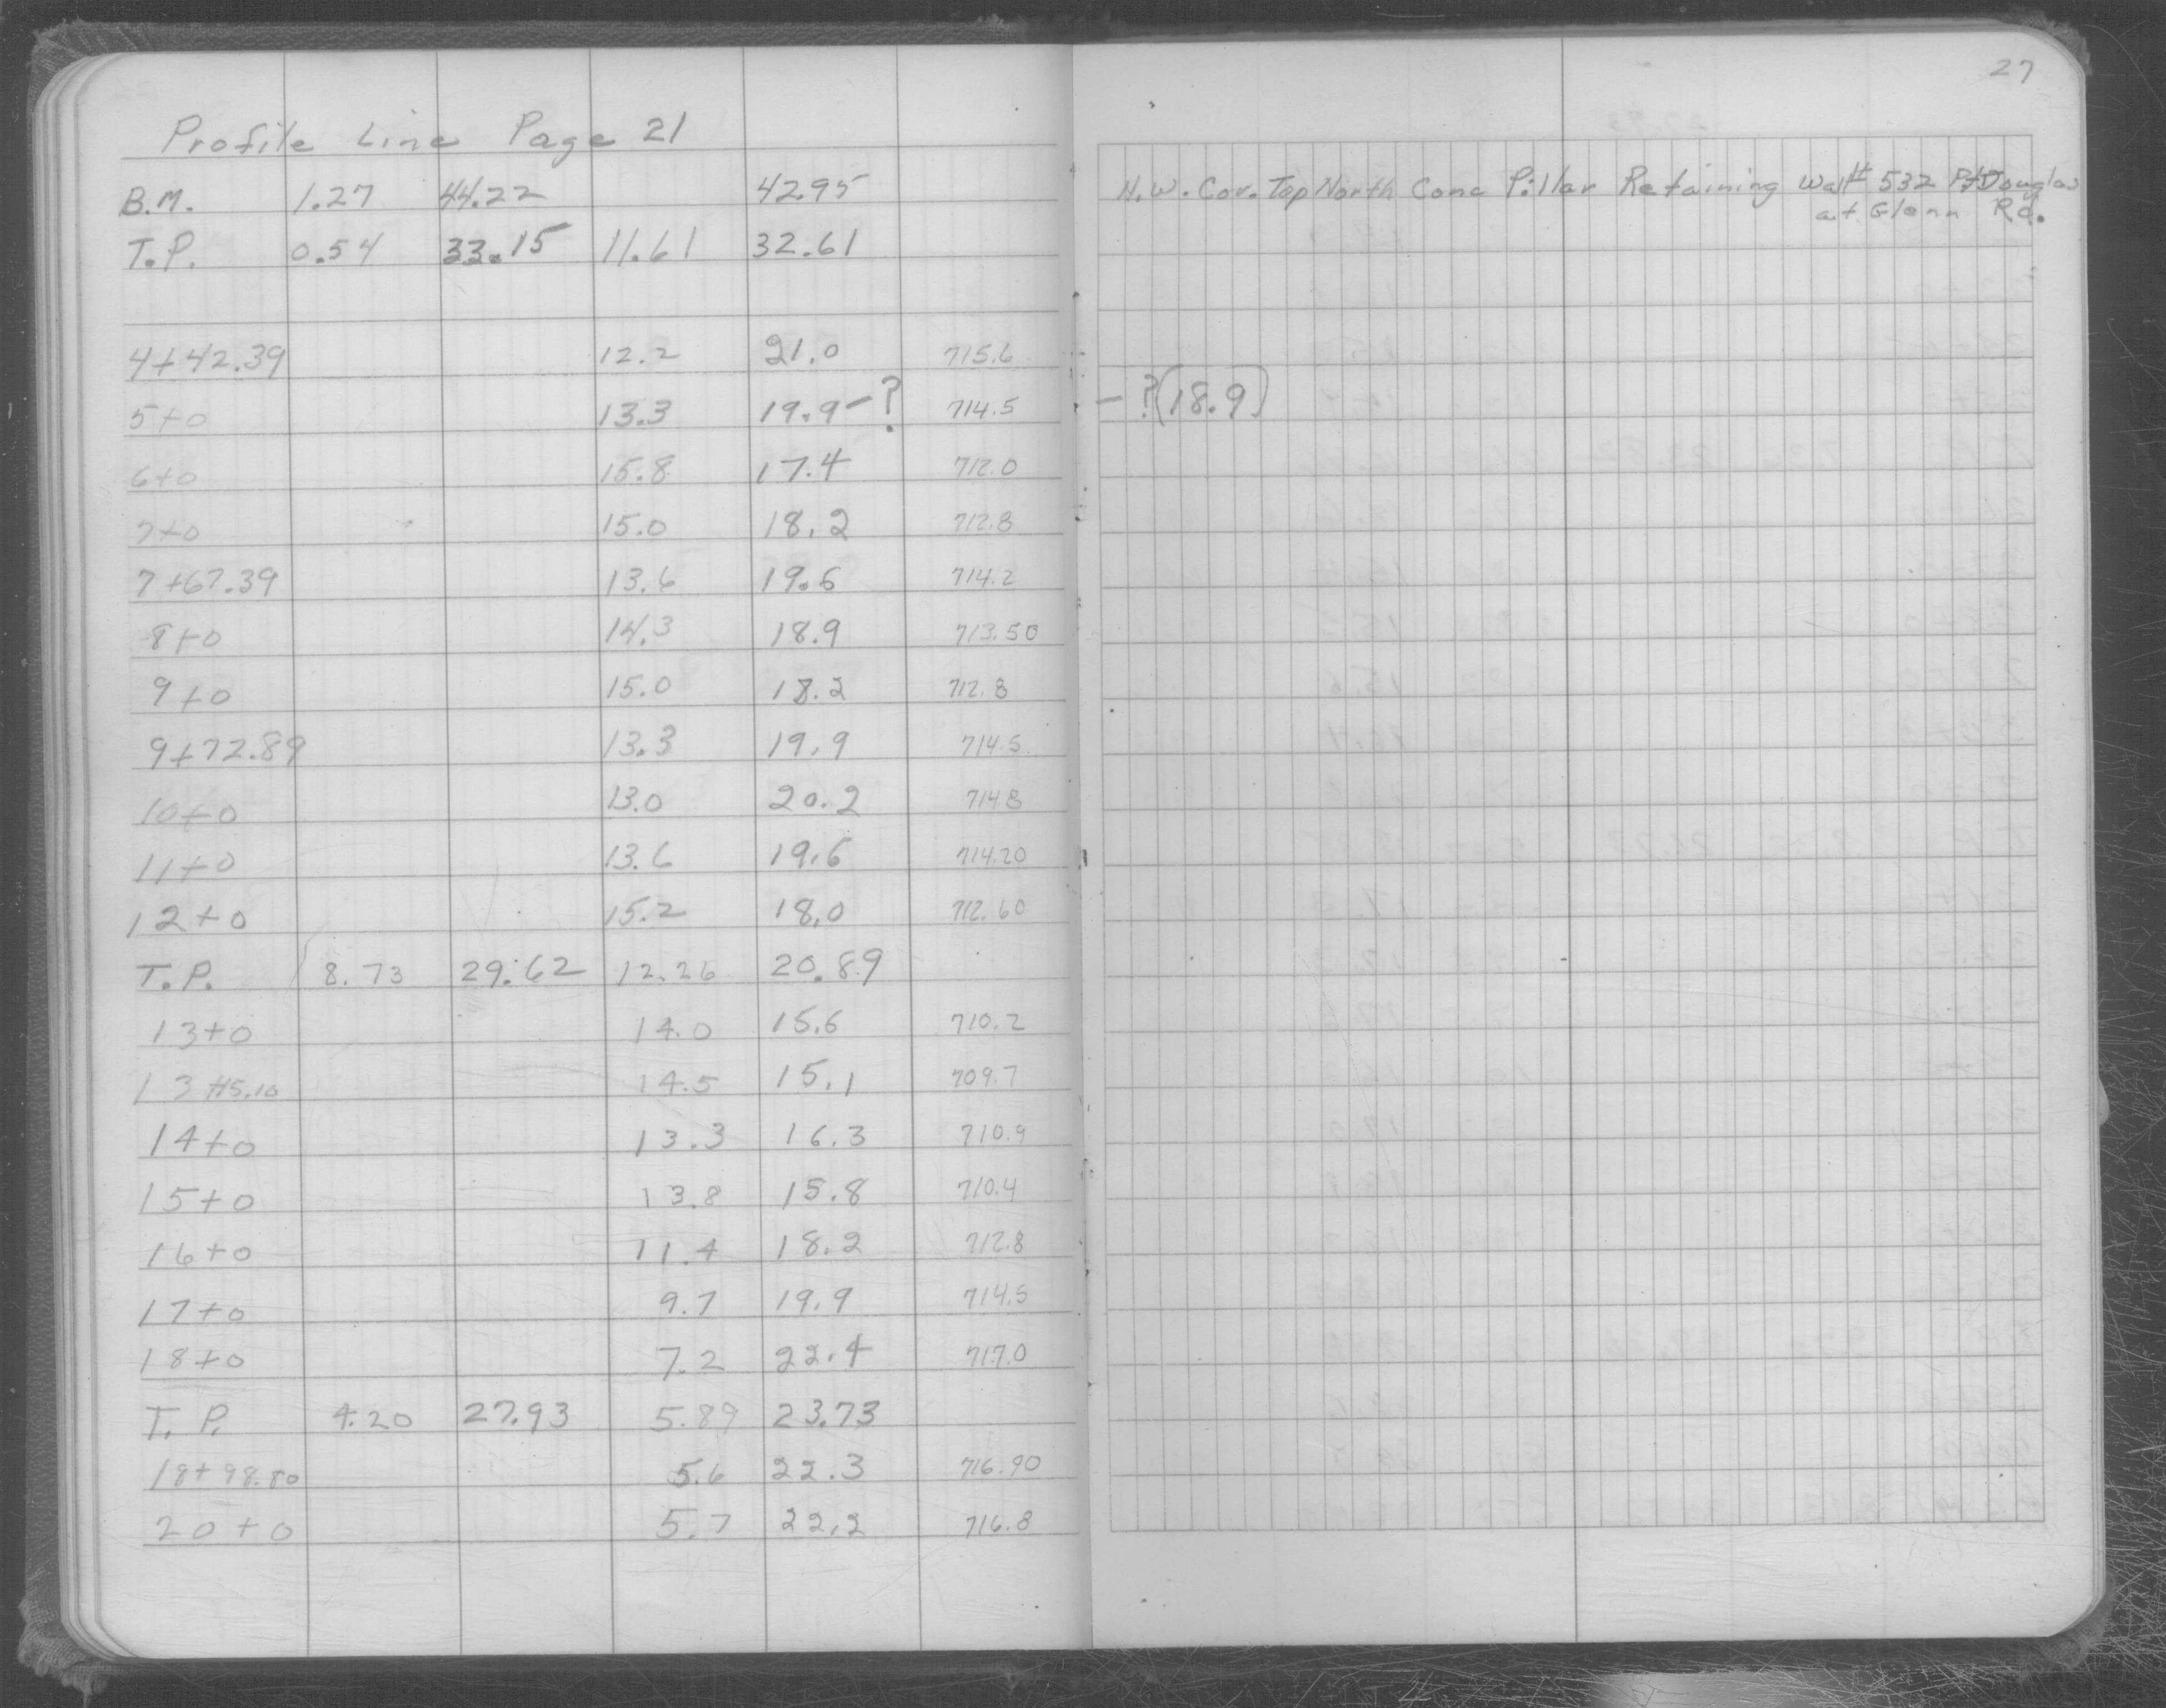 27
Profile Line Page 21
B.M. 1.27 44.22 42.95
T.P. 0.54 33.15 11.61 32.61
4+42.39 12.2 21.0 715.6
5+0 13.3 19.9-? 714.5
6+0 15.8 17.4 712.0
7+0 15.0 18.2 712.8
7+67.39 13.6 19.6 714.2
8+0 14.3 18.9 713.50
9+0 15.0 18.2 712.8
9+72.89 13.3 19.9 714.5
10+0 13.0 20.2 714.8
11+0 13.6 19.6 714.20
12+0 15.2 18.0 712.60
T.P. 8.73 29.62 12.26 20.89
13+0 14.0 15.6 710.2
13+15.10 14.5 15.1 709.7
14+0 13.3 16.3 710.9
15+0 13.8 15.8 710.4
16+0 11.4 18.2 712.8
17+0 9.7 19.9 714.5
18+0 7.2 22.4 717.0
T.P. 4.20 27.93 5.89 23.73
18+98.80 5.6 22.3 716.90
20+0 5.7 22.2 716.8
N.W. Cor. Top North Conc Pillar Retaining Wall # 532 Pt Douglas
at Glenn Rd.
- ?(18.9)